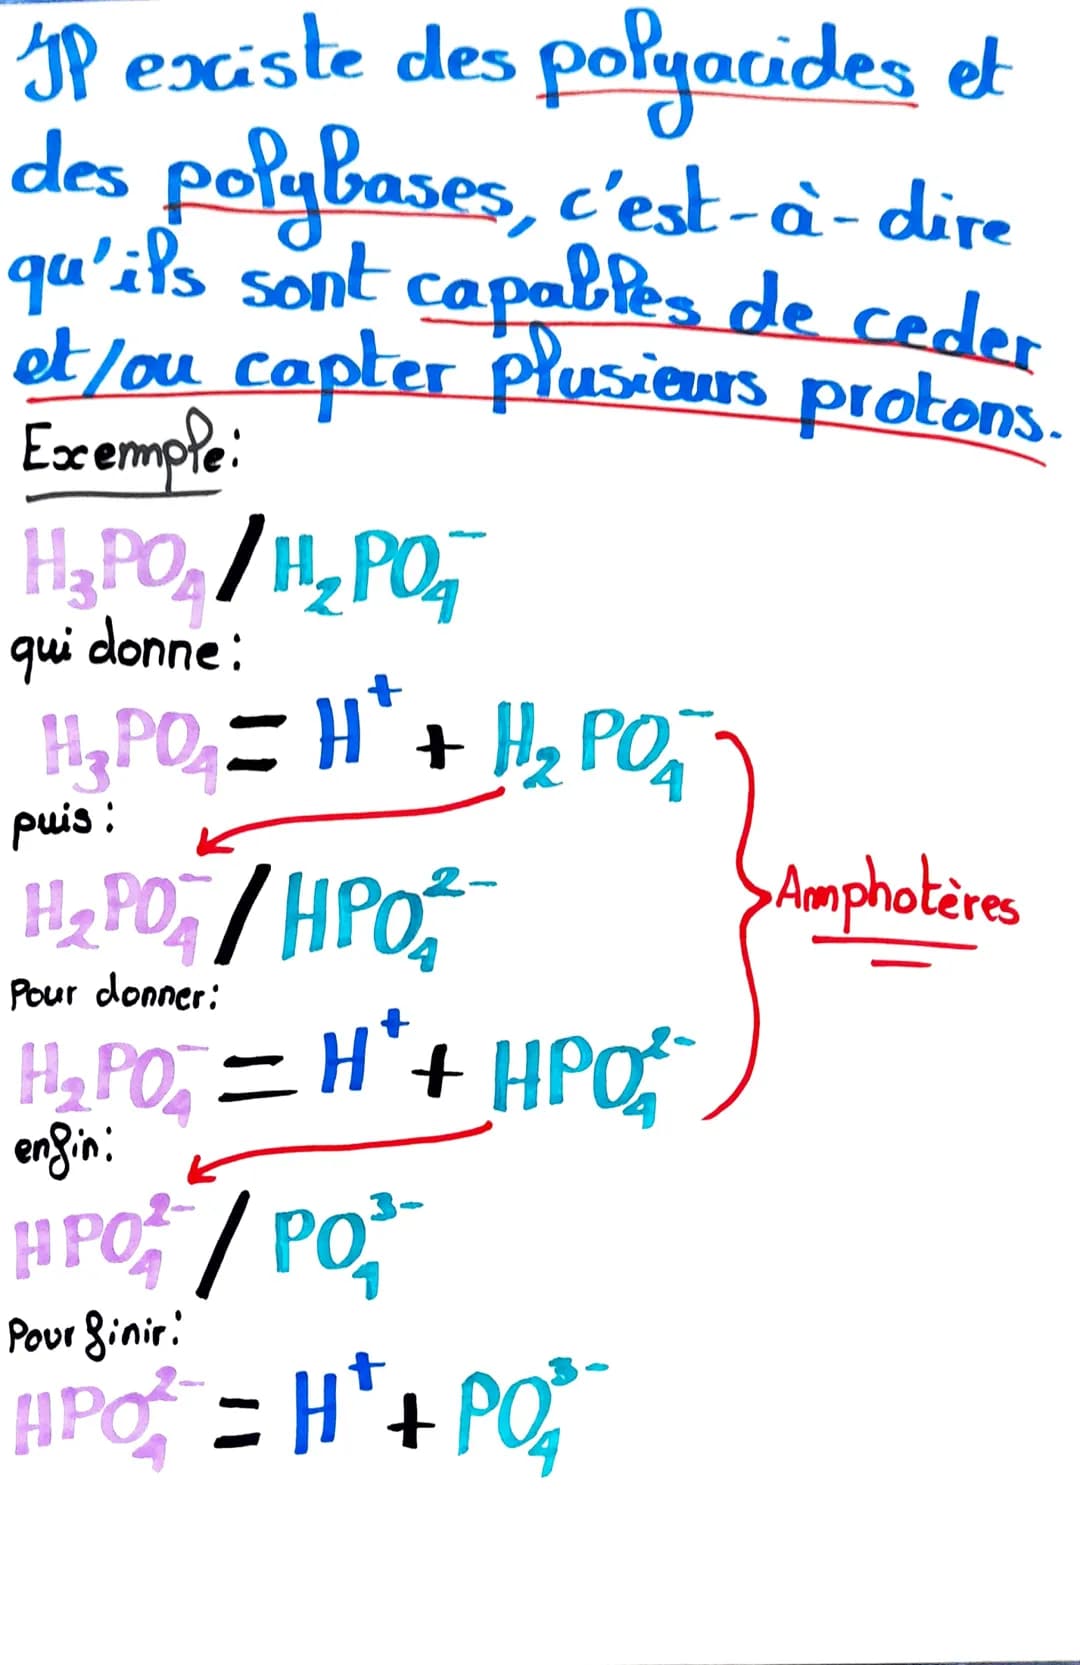 Il existe des polyacides et
des polybases, c'est-à-dire
qu'ils sont capables de ceder
et/ou capter plusieurs protons.
Exemple:
H₃PO₄ / H₂PO₄⁻
qui donne:
H₃PO₄ = H⁺ + H₂PO₄⁻
puis:
H₂PO₄⁻ / HPO₄²⁻
Amphotères
Pour donner:
H₂PO₄⁻ = H⁺ + HPO₄²⁻
enfin:
HPO₄²⁻ / PO₄³⁻
Pour finir:
HPO₄²⁻ = H⁺ + PO₄³⁻